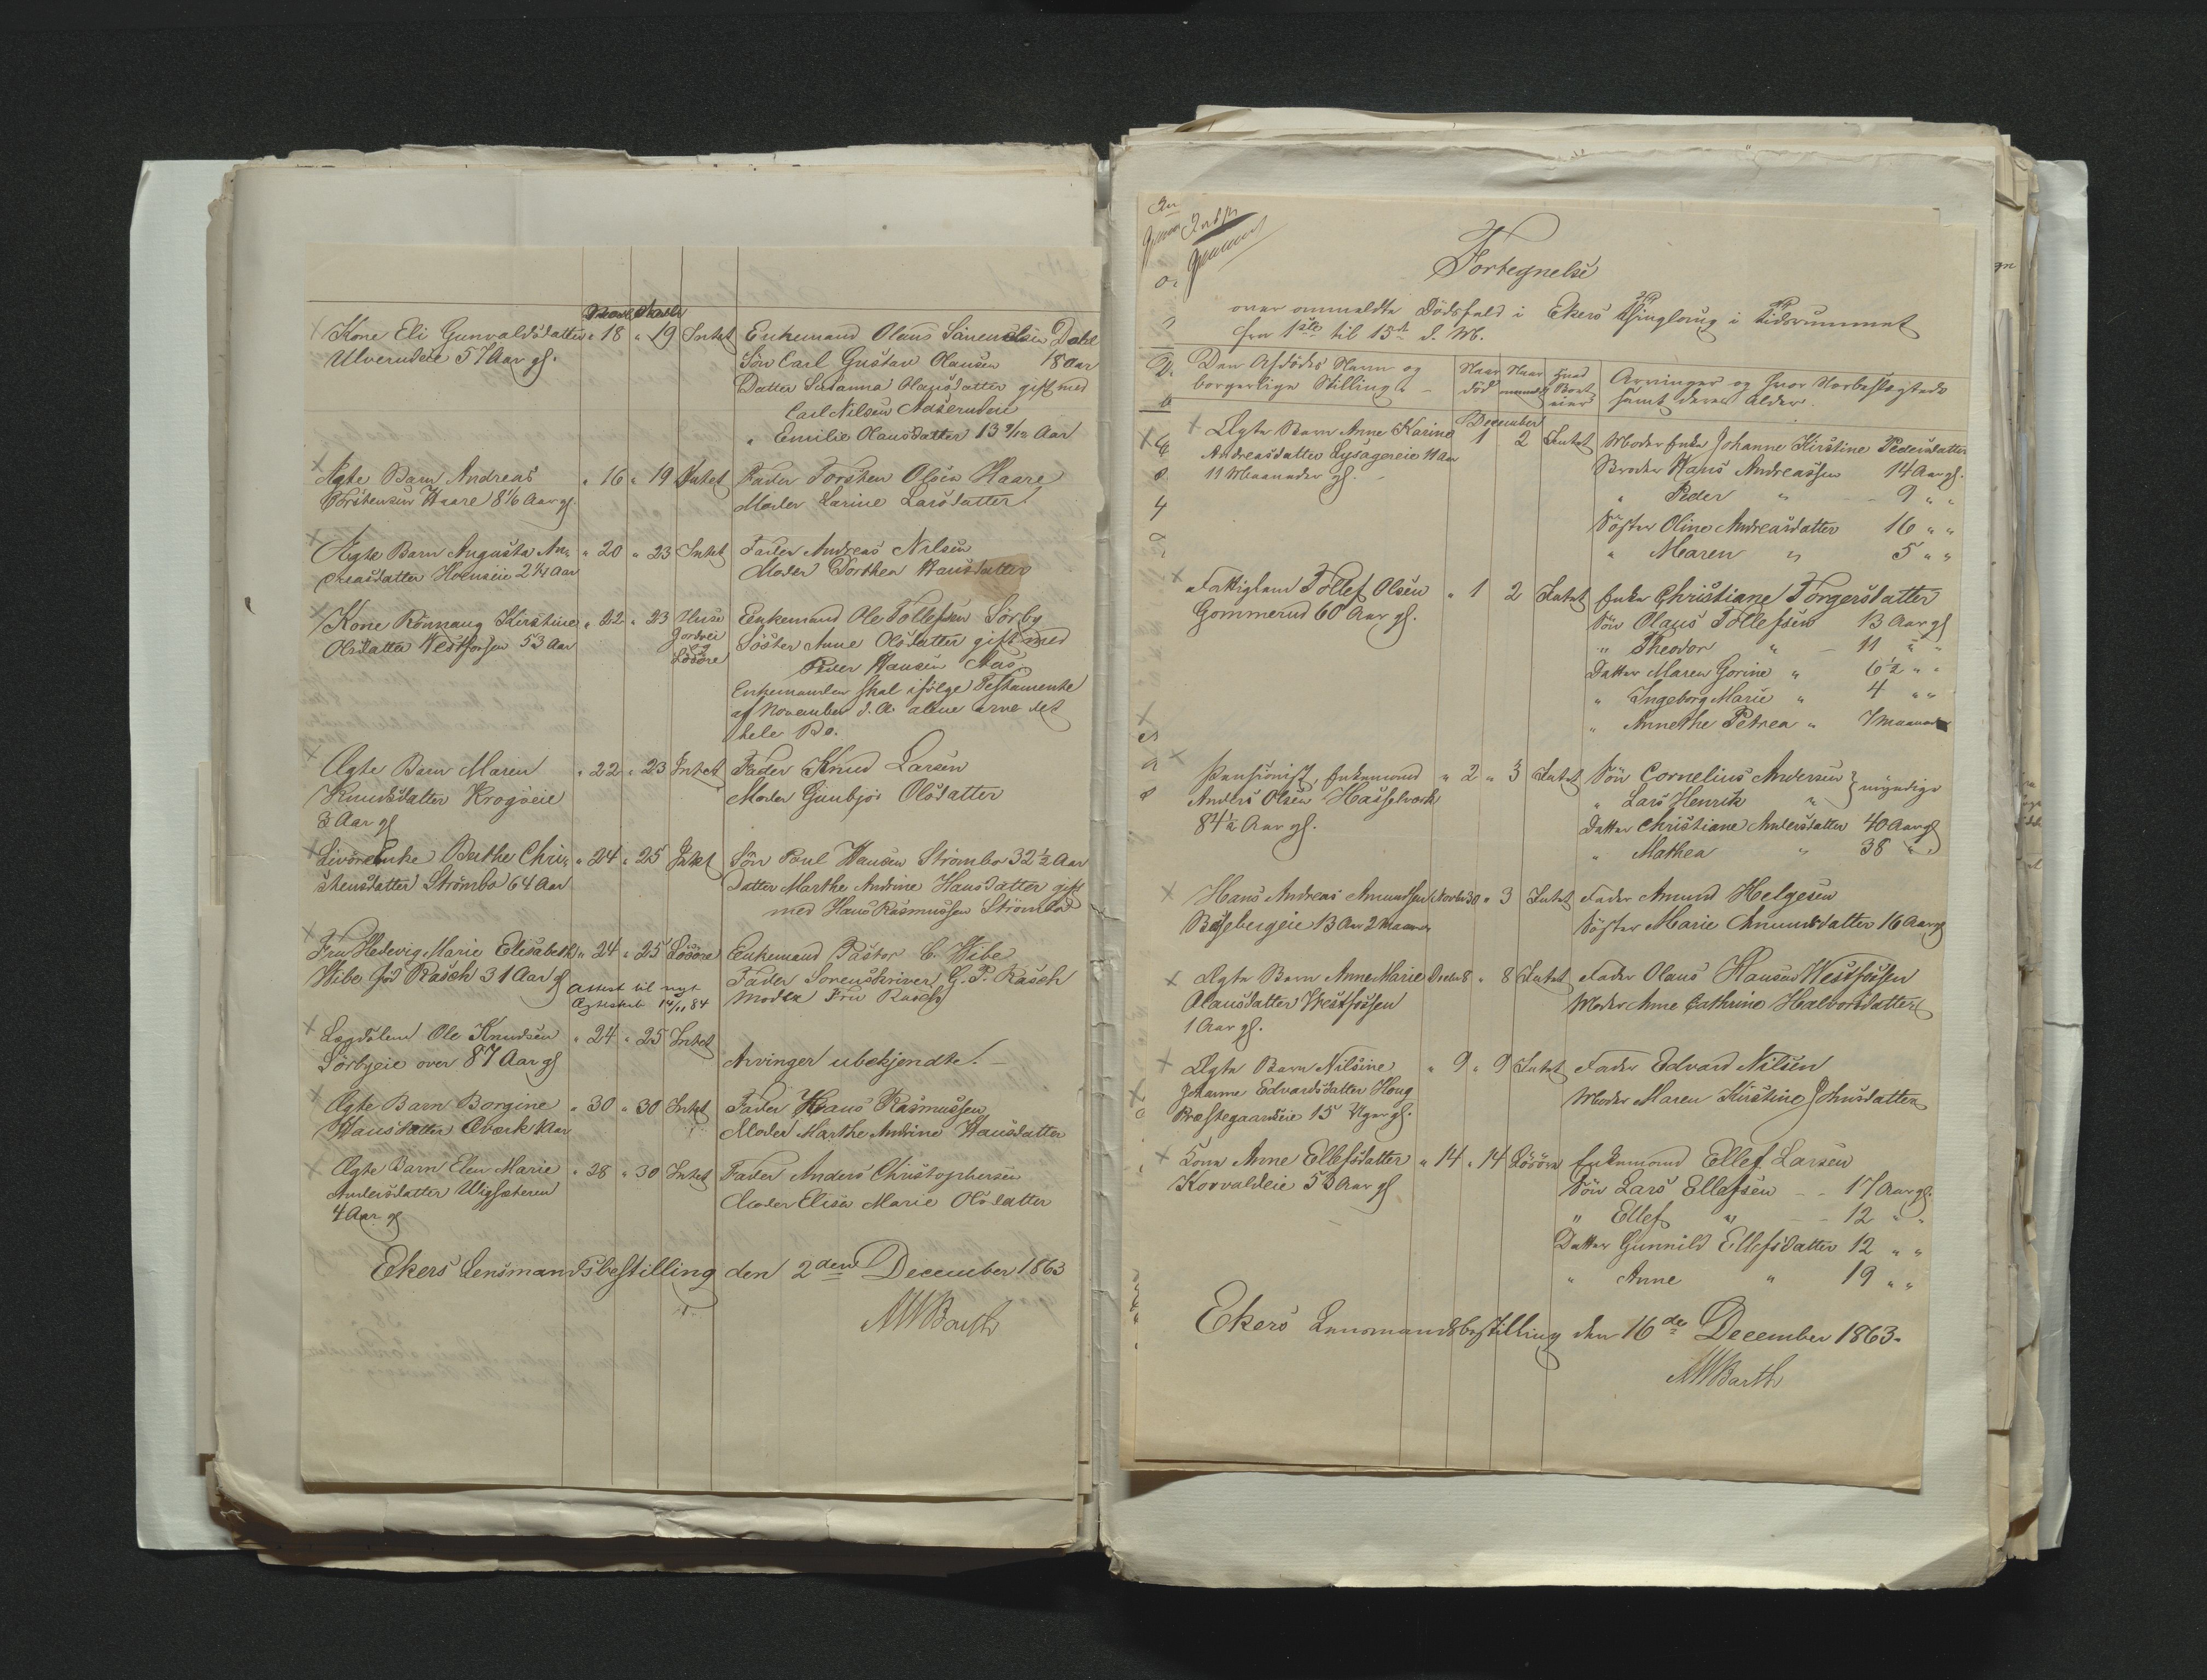 Kone Eli Gunvaldsdatter " 18 " 19 Intet Enkemand Olaus Dahl
Ulverudeie 57 Aar gl. Sön Carl Gustav Olausen 18 Aar
Datter Susanna Olausdatter gift med
Carl Nilsen
" Emilie Olausdatter 13 9/12 Aar
Ægte Barn Andreas " 16 " 19 Intet Fader Torsten Olsen Haare
Torstensen Haare 8 1/6 Aar gl. Moder Karine Larsdatter
Ægte Barn Augusta An- " 20 " 23 Intet Fader Andreas Nilsen
dreasdatter Hoenseie 2 1/4 Aar Moder Dorthea Hansdatter
Kone Rönnaug Kirstine " 22 " 23 Huse Enkemand Ole Tollefsen Sörby
Olsdatter Vestfossen 53 Aar Jordvei og Söster Anne Olsdatter gift med
Lösöre Peder Hansen Aas.
Enkemanden skal ifölge Testamente
af November d. A. alene arve det
hele Bo.
Ægte Barn Maren " 22 " 23 Intet Fader Knud Larsen
Knudsdatter Krogseie Moder Gunbjör Olsdatter
3 Aar gl
Livöreenke Berthe Chri- " 24 " 25 Intet Sön Poul Hansen Strömbo 32 1/2 Aar
stensdatter Strömbo 64 Aar Datter Marthe Andrine Hansdatter gift
med Hans Rasmussen Strömbo
Fru Hedevig Marie Elisabeth " 24 " 25 Lösöre Enkemand Pastor C. Wibe
Wibe föd Rasch 31 Aar gl Fader Sorenskriver G. P. Rasch
Attest til nyt Moder Fru Rasch
Ægteskab 14/11 84
Lægdslem Ole Knudsen " 24 " 25 Intet
Sörbyeie over 87 Aar gl Arvinger ubekjendte.
Ægte Barn Borgine " 30 " 30 Intet Fader Hans Rasmussen
Hansdatter 1 Aar Moder Marthe Andrine Hansdatter
Ægte Barn Elen Marie " 28 " 30 Intet Fader Anders Christophersen
Andersdatter Moder Elise Marie Olsdatter
4 Aar gl
Ekers Lensmandsbestilling den 2den December 1863
MW Barth
Fortegnelse
over anmeldte Dödsfald i Ekers Thinglaug i Tidsrummet
fra 1ste til 15de d. M.
Den Afdödes Navn og Naar Naar Hvad Arvinger og hvor Nærbeslægtede
borgerlige Stilling död anmeldt Boet eier samt deres Alder.
December
Ægte Barn Anne Karine 1 2 Intet Moder Enke Johanne Kirstine Pedersdatter
Andreasdatter Lysagereie 11 Aar Broder Hans Andreassen 14 Aar gl.
11 Maaneder gl. " Peder " 9 " "
Söster Oline Andreasdatter 16 " "
" Maren " 5 " "
Fattiglem Tollef Olsen " 1 2 Intet Enke Christiane Torgersdatter
Gommerud 60 Aar gl. Sön Olaus Tollefsen 13 Aar gl
" Theodor " 11 " "
Datter Maren Gorine " 6 1/2 " "
" Ingeborg Marie " 4 " "
" Annethe Petrea " 7 Maaneder
Pensionist, Enkemand " 2 " 3 Intet Sön Cornelius Andersen } myndige
Anders Olsen Hasselværk " Lars Henrik "
84 1/2 Aar gl. Datter Christiane Andersdatter 40 Aar gl
" Mathea " 38 " "
Hans Andreas Amundsen Novbr 30 " 3 Intet Fader Amund Helgesen
Bösebergeie 13 Aar 2 Maaneder Söster Marie Amundsdatter 16 Aar gl
Ægte Barn Anne Marie Decbr 8 " 8 Intet Fader Olaus Hansen Westfossen
Olausdatter Westfossen Moder Anne Cathrine Halvorsdatter
1 Aar gl.
Ægte Barn Nilsine " 9 " 9 Intet Fader Edvard Nilsen
Johanne Edvardsdatter Houg Moder Maren Kirstine Johnsdatter
Præstegaardseie 15 Uger gl.
Kone Anne Ellefsdatter " 14 " 14 Lösöre Enkemand Ellef Larsen
Korvaldeie 53 Aar gl Sön Lars Ellefsen 17 Aar gl.
" Ellef " 12 " "
Datter Gunnild Ellefsdatter 12 " "
" Anne " 19 " "
Ekers Lensmandsbestilling den 16de December 1863.
MW Barth